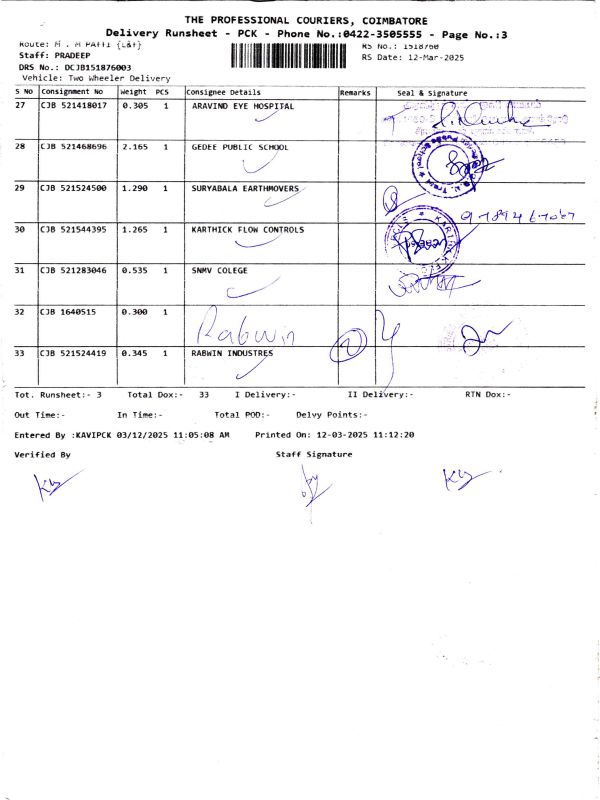 THE PROFESSIONAL COURIERS, COIMBATORE
Delivery Runsheet - PCK - Phone No.:0422-3505555 - Page No.:3
Route: M . M PATTI {L&T}
RS No.: 1518760
Staff: PRADEEP
RS Date: 12-Mar-2025
DRS No.: DCJB151876003
Vehicle: Two Wheeler Delivery
S NO Consignment No Weight PCS Consignee Details Remarks Seal & Signature
27 CJB 521418017 0.305 1 ARAVIND EYE HOSPITAL
28 CJB 521468696 2.165 1 GEDEE PUBLIC SCHOOL
29 CJB 521524500 1.290 1 SURYABALA EARTHMOVERS
30 CJB 521544395 1.265 1 KARTHICK FLOW CONTROLS
31 CJB 521283046 0.535 1 SNMV COLEGE
32 CJB 1640515 0.300 1
Rabwin 2
33 CJB 521524419 0.345 1 RABWIN INDUSTRES
Tot. Runsheet:- 3 Total Dox:- 33 I Delivery:- II Delivery:- RTN Dox:-
Out Time:- In Time:- Total POD:- Delvy Points:-
Entered By :KAVIPCK 03/12/2025 11:05:08 AM Printed On: 12-03-2025 11:12:20
Verified By Staff Signature